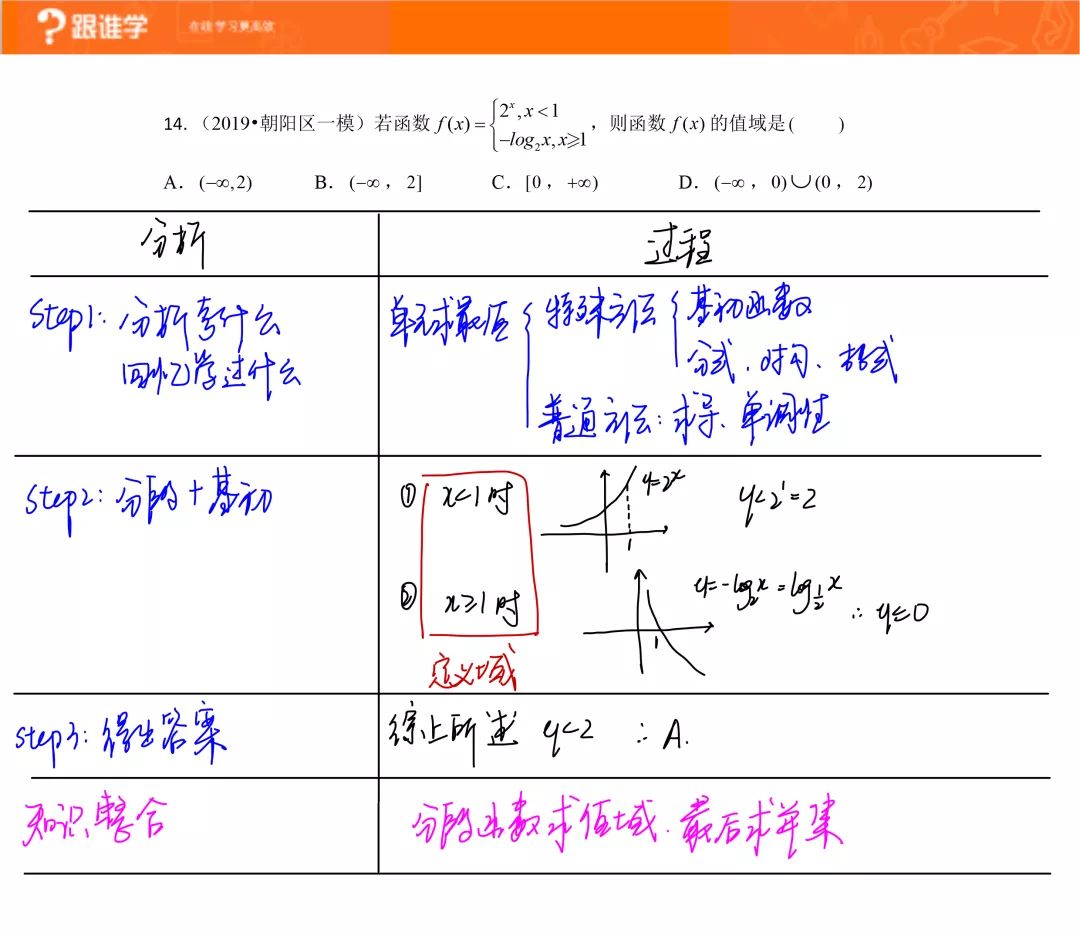 跟谁学 在线学习更高效
14.（2019•朝阳区一模）若函数 f(x)={2^x, x<1
-log₂x, x⩾1，则函数 f(x) 的值域是(　　)
A．(-∞,2)　B．(-∞，2]　C．[0，+∞)　D．(-∞，0)∪(0，2)
分析　过程
Step1: 分析考什么
回忆学过什么
单元求最值 { 特殊方法 { 基初函数
分式、对勾、根式
普通方法: 求导、单调性
Step2: 分段+基初
① x<1时　y=2^x　1　y<2^1=2
② x≥1时　1　y=-log₂x=log_{1/2}x　∴ y≤0
定义域
Step3: 得出答案
综上所述 y<2 ∴ A.
知识整合
分段函数求值域.最后求并集